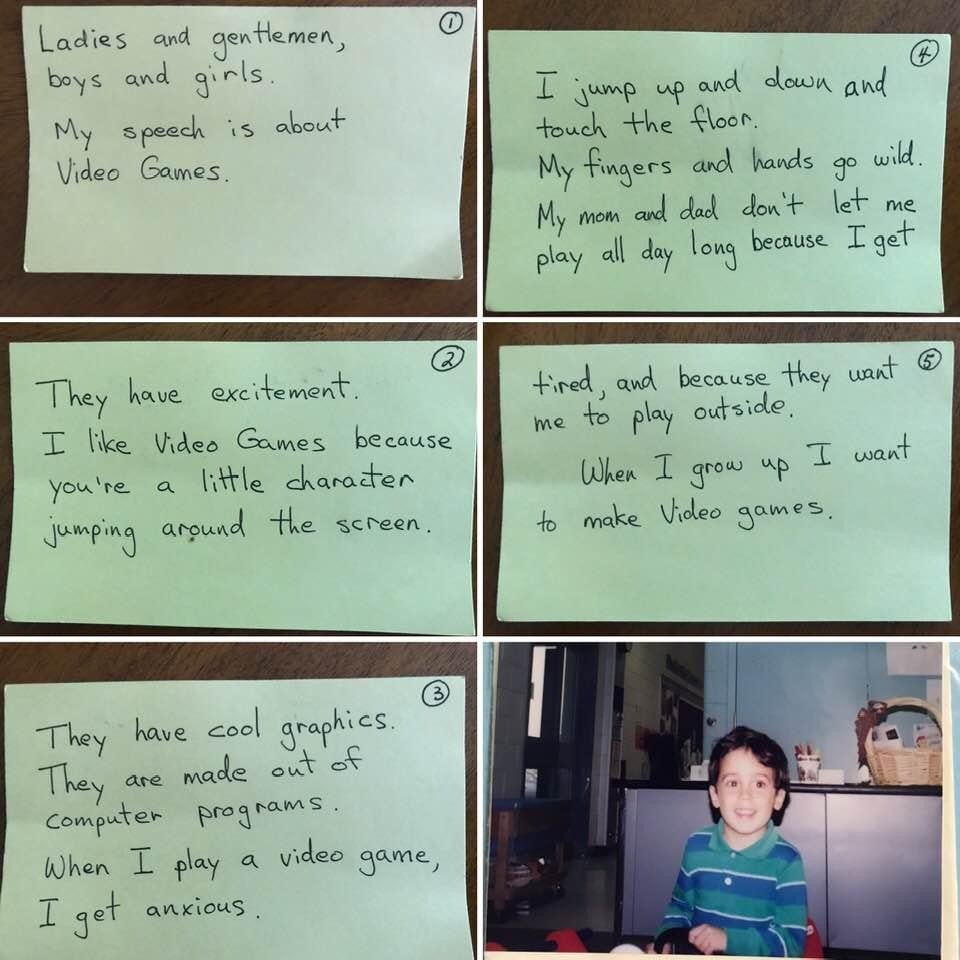 1
Ladies and gentlemen,
boys and girls.
My speech is about
Video Games.
2
They have excitement.
I like Video Games because
you're a little character
jumping around the screen.
3
They have cool graphics.
They are made out of
computer programs.
When I play a video game,
I get anxious.
4
I jump up and down and
touch the floor.
My fingers and hands go wild.
My mom and dad don't let me
play all day long because I get
5
tired, and because they want
me to play outside.
When I grow up I want
to make Video games.